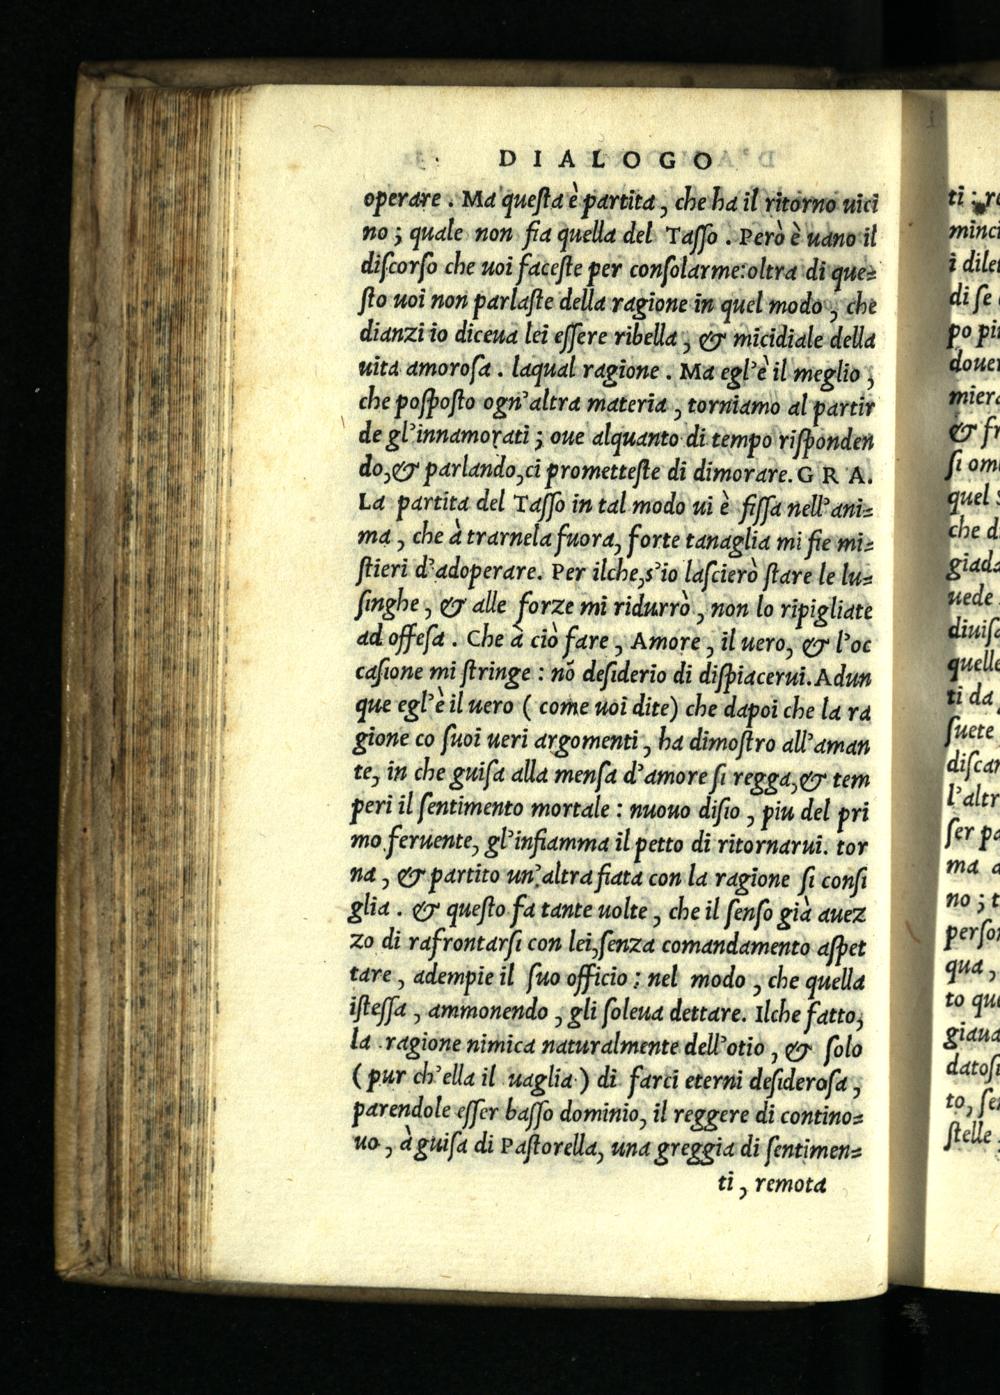 DIALOGO
operare . Ma queſta è partita , che ha il ritorno uici
no ; quale non fia quella del Taſſo . Però è uano il
diſcorſo che uoi faceſte per conſolarme: oltra di que=
ſto uoi non parlaſte della ragione in quel modo , che
dianzi io diceua lei eſſere ribella , & micidiale della
uita amoroſa . laqual ragione . Ma egl'è il meglio ,
che poſpoſto ogn'altra materia , torniamo al partir
de gl'innamorati ; oue alquanto di tempo riſponden
do,& parlando,ci prometteſte di dimorare. G R A.
La partita del Taſſo in tal modo ui è fiſſa nell'ani=
ma , che à trarnela fuora, forte tanaglia mi fie mi=
ſtieri d'adoperare. Per ilche,s'io laſcierò ſtare le lu=
ſinghe , & alle forze mi ridurrò , non lo ripigliate
ad offeſa . Che à ciò fare , Amore , il uero, & l'oc
caſione mi ſtringe : nõ deſiderio di diſpiacerui. Adun
que egl'è il uero ( come uoi dite) che dapoi che la ra
gione co ſuoi ueri argomenti , ha dimoſtro all'aman
te, in che guiſa alla menſa d'amore ſi regga,& tem
peri il ſentimento mortale : nuouo diſio , piu del pri
mo feruente, gl'infiamma il petto di ritornarui. tor
na , & partito un'altra fiata con la ragione ſi conſi
glia . & queſto fa tante uolte , che il ſenſo già auez
zo di rafrontarſi con lei,ſenza comandamento aſpet
tare , adempie il ſuo officio : nel modo , che quella
iſteſſa , ammonendo , gli ſoleua dettare. Ilche fatto,
la ragione nimica naturalmente dell'otio , & ſolo
( pur ch'ella il uaglia ) di farci eterni deſideroſa ,
parendole eſſer baſſo dominio, il reggere di contino=
uo , à guiſa di Paſtorella, una greggia di ſentimen=
ti , remota
ti : r
minci
i dilet
di ſe
po pi
doue
mier
& fr
ſi om
quel
che d
giada
uede
diuiſ
quelle
ti da
ſuete
diſcar
l'altr
ſer pa
ma
no ; t
perſo
qua ,
to qu
giaua
datoſi
to, ſe
ſtelle